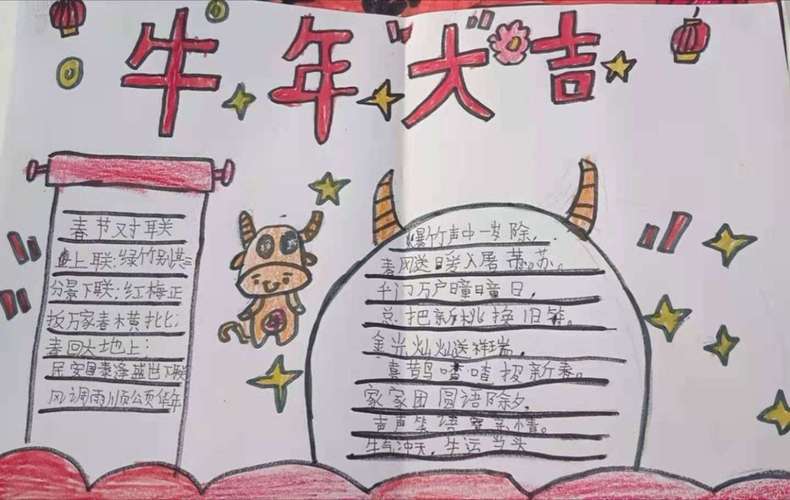 牛年大吉
春节对联
上联:绿竹别其三
分景下联:红梅正
报万家春横批:
春回大地上:
民安国泰逢盛世下联
风调雨顺颂华年
爆竹声中一岁除,
春风送暖入屠苏。
千门万户曈曈日,
总把新桃换旧符。
金光灿灿送祥瑞,
喜鹊喳喳报新春。
家家团圆语除夕,
声声笑语亲情。
牛气冲天,牛运当头